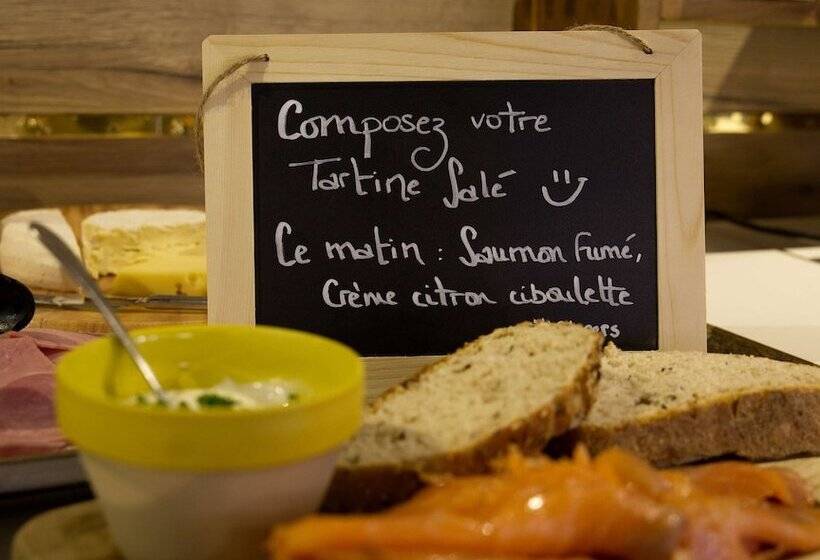 Composez votre
Tartine Salé
Ce matin : Saumon Fumé,
Crème citron ciboulette